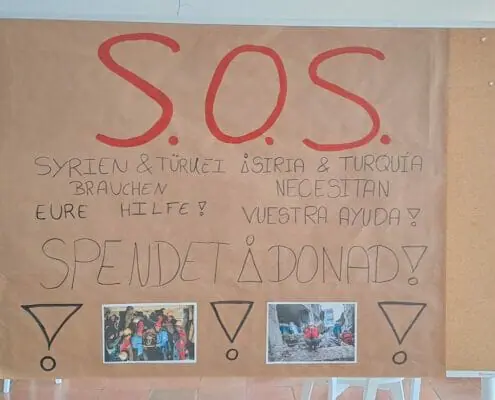 S.O.S.
SYRIEN & TÜRKEI ¡SIRIA & TURQUÍA
BRAUCHEN NECESITAN
EURE HILFE! VUESTRA AYUDA!
SPENDET ¡DONAD!
! ! !